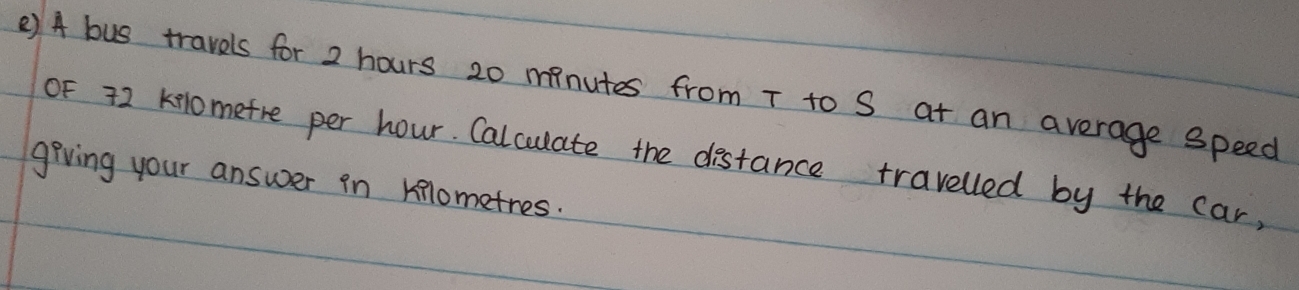 e) A bus travels for 2 hours 20 minutes from T to S at an average speed
OF 72 kilometre per hour. Calculate the distance travelled by the car,
giving your answer in kilometres.